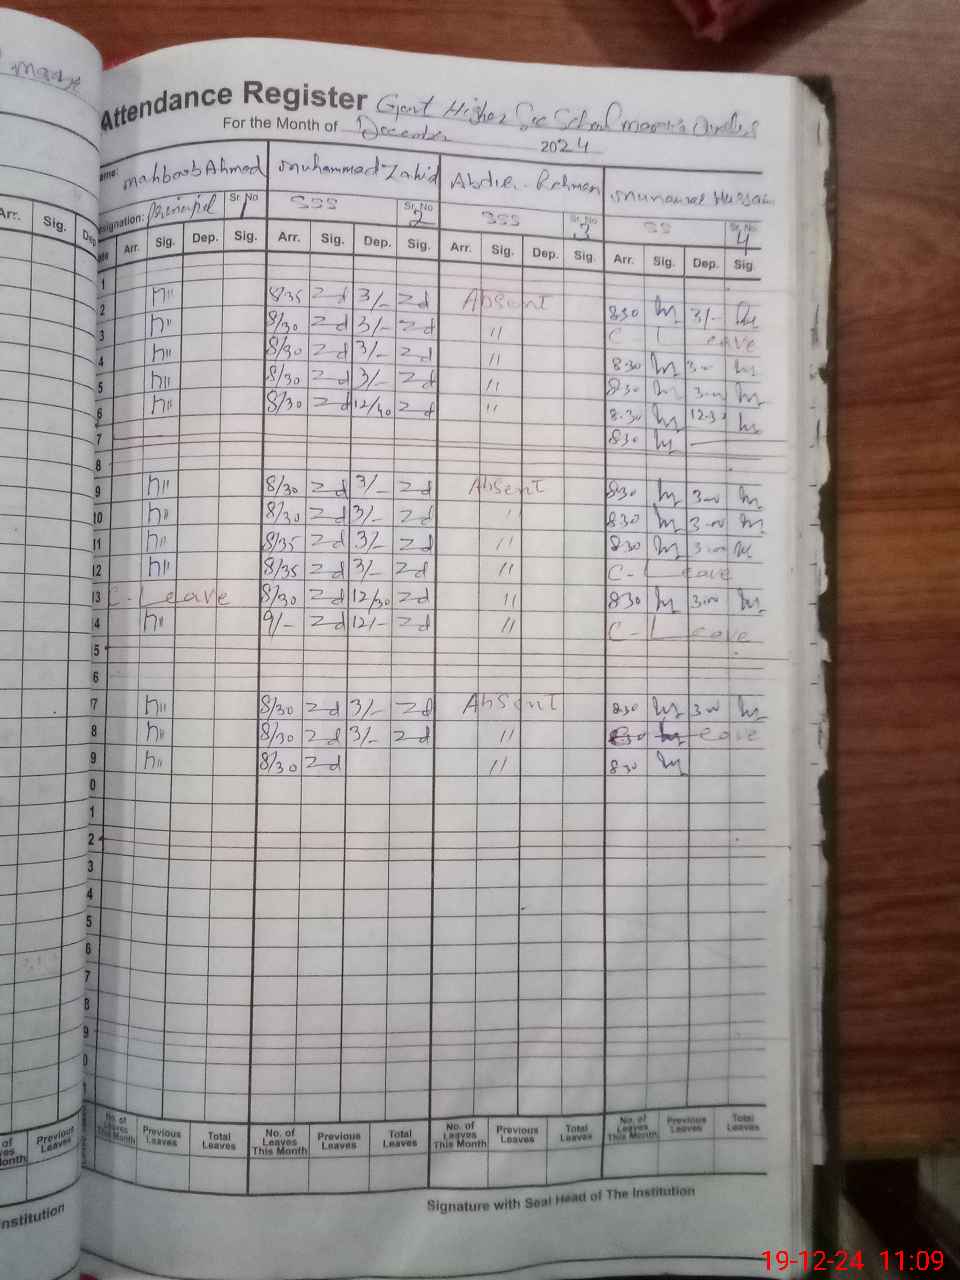 Attendance Register Govt Higher Sec School
For the Month of December 2024
Name: Mahboob Ahmed Muhammad Zahid Abdur-Rehman Munawar Hussain
Designation: Principal Sr.No 1 SSS Sr.No 2 SSS Sr.No 3 SS Sr.No 4
Arr. Sig. Dep. Sig. Arr. Sig. Dep. Sig. Arr. Sig. Dep. Sig. Arr. Sig. Dep. Sig
1
2 8/35 Zd 3/- Zd Absent 830 3/-
3 8/30 Zd 3/- Zd " C Leave
4 8/30 Zd 3/- Zd " 830 3-00
5 8/30 Zd 3/- Zd " 830 3-00
6 8/30 Zd 12/30 Zd " 8.30 12-30
7 830
8
9 8/30 Zd 3/- Zd Absent 830 3-00
10 8/30 Zd 3/- Zd " 830 3-00
11 8/35 Zd 3/- Zd " 830 3-00
12 8/35 Zd 3/- Zd " C-Leave
13 C-Leave 8/30 Zd 12/30 Zd " 830 3-00
4 9/- Zd 12/- Zd " C-Leave
5
6
7 8/30 Zd 3/- Zd Absent 830 3-00
8 8/30 Zd 3/- Zd " 830 Leave
9 8/30 Zd " 830
0
1
2
3
4
5
6
7
8
9
0
No. of Leaves This Month Previous Leaves Total Leaves No. of Leaves This Month Previous Leaves Total Leaves No. of Leaves This Month Previous Leaves Total Leaves No. of Leaves This Month Previous Leaves Total Leaves
Signature with Seal Head of The Institution
Arr. Sig. Dep
Previous Leaves
nstitution
19-12-24 11:09